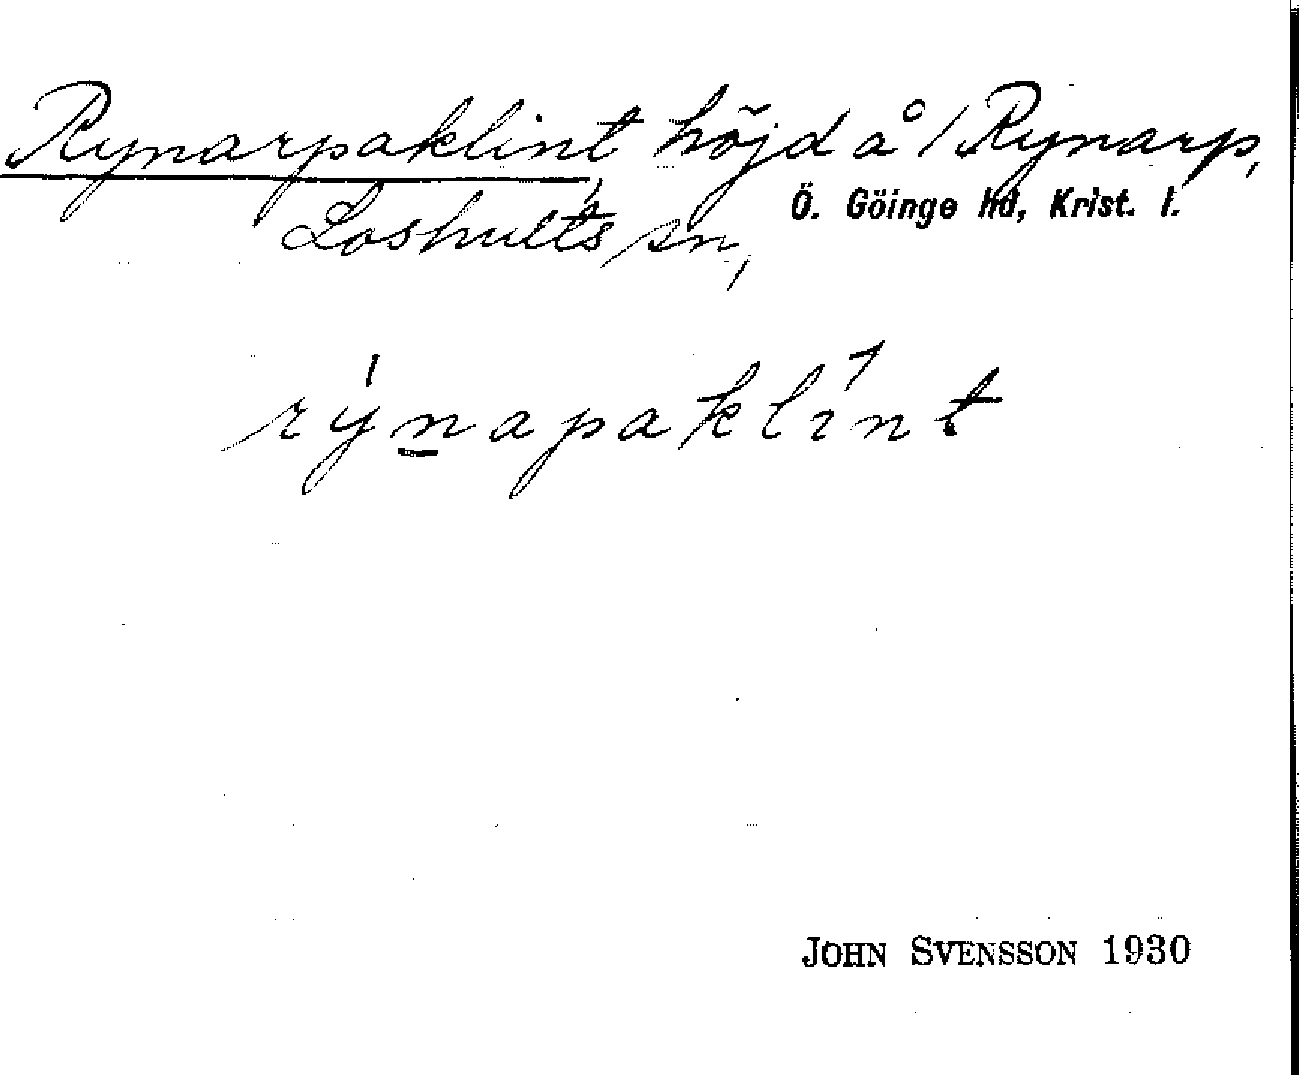 Rynarpaklint, höjd å 1 Rynarp,
Loshults sn, Ö. Göinge hd, Krist. l.
rýnapaklínt
JOHN SVENSSON 1930